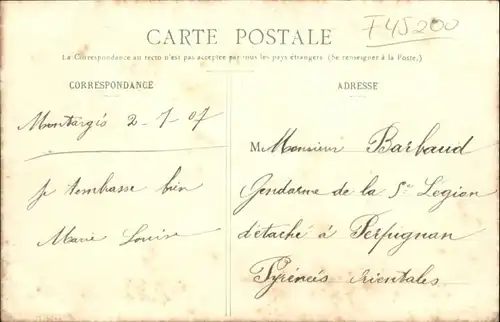 F45200
CARTE POSTALE
La Correspondance au recto n'est pas acceptée par tous les pays étrangers (Se renseigner à la Poste.)
CORRESPONDANCE
Montargis 2-7-07
Je t'embrasse bien
Marie Louise
ADRESSE
M Monsieur Barbaud
Gendarme de la 5e Legion
détaché à Perpignan
Pyrénées Orientales.